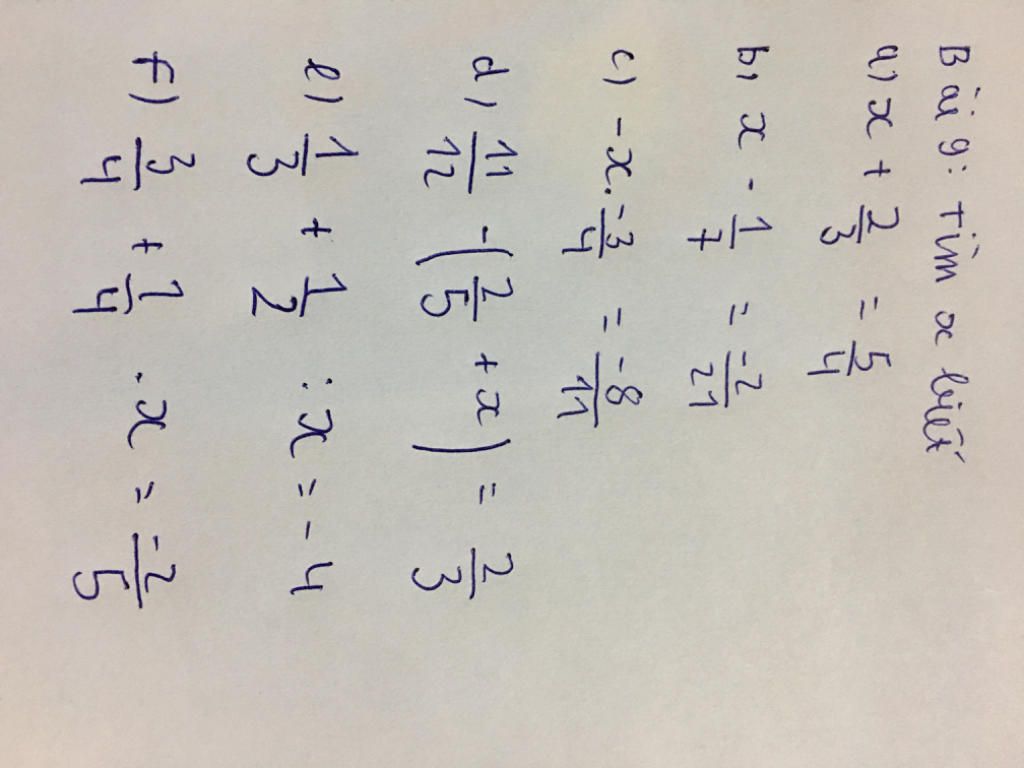 Bài 9: Tìm x biết
a) x + 2/3 = 5/4
b) x - 1/7 = -2/21
c) -x. -3/4 = -8/11
d) 11/12 - (2/5 + x) = 2/3
e) 1/3 + 1/2 : x = -4
f) 3/4 + 1/4 . x = -2/5